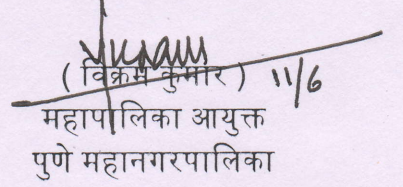 ( विक्रम कुमार ) 11/6
महापालिका आयुक्त
पुणे महानगरपालिका